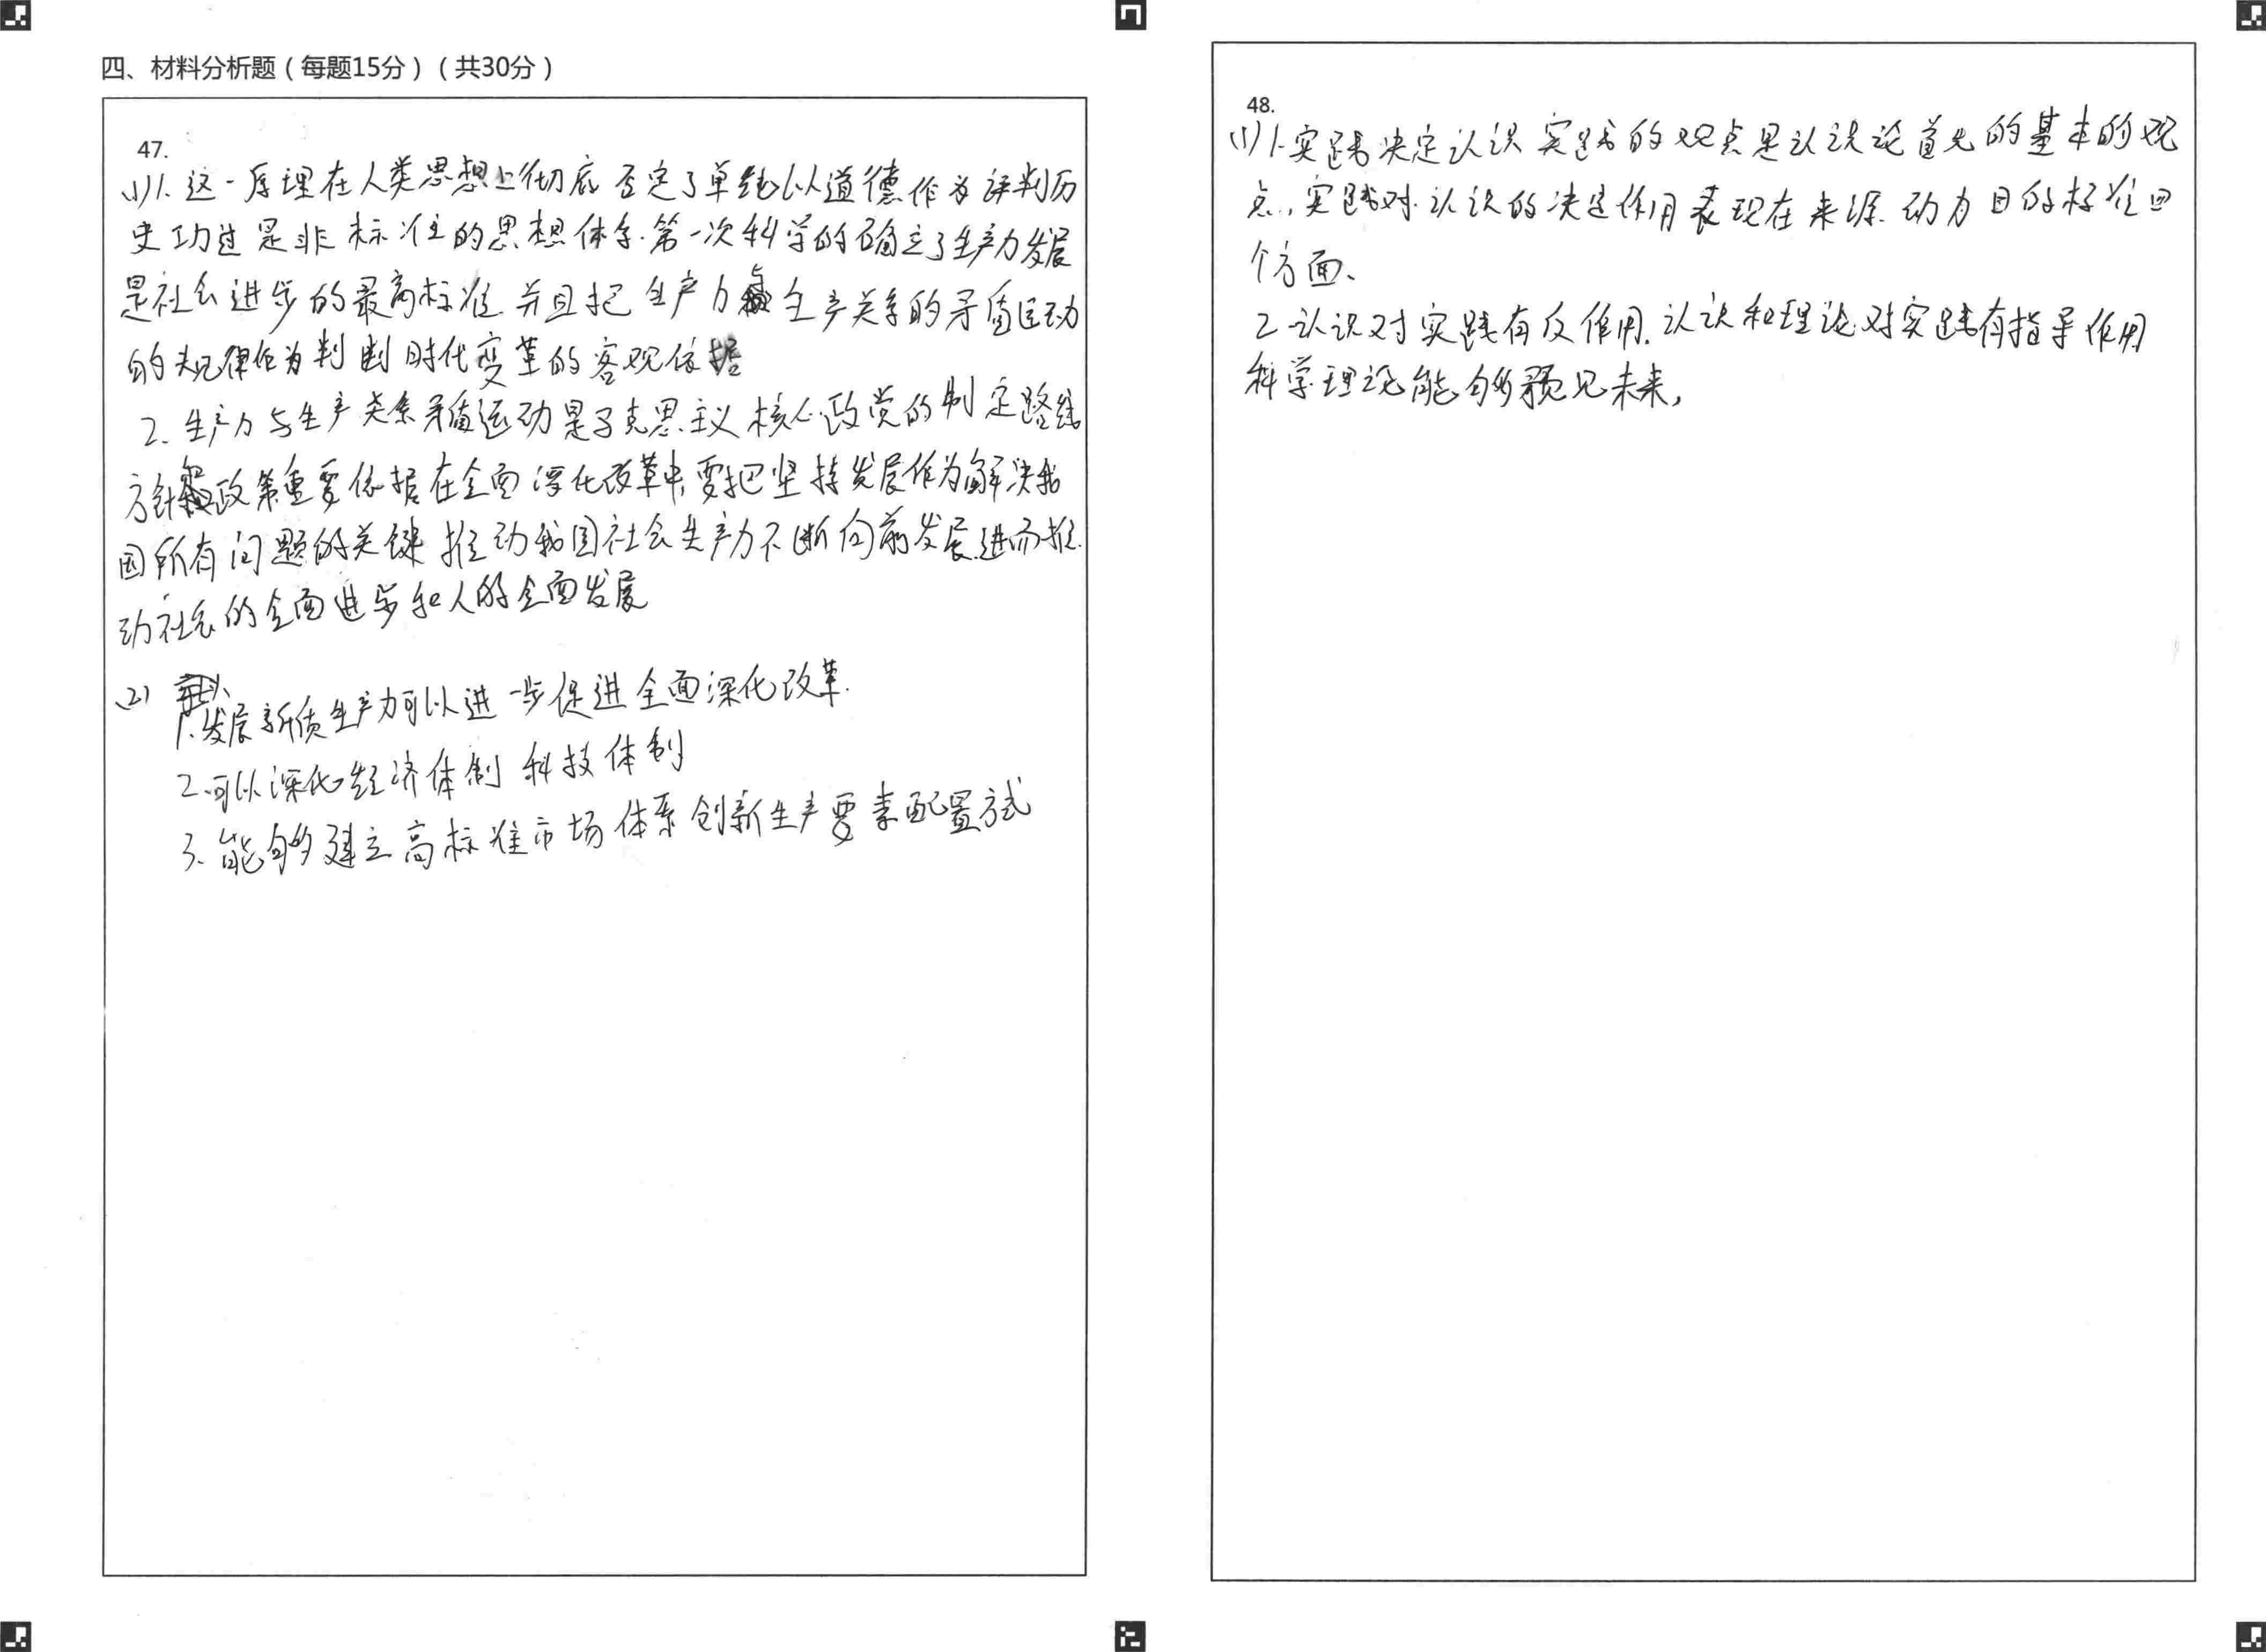 四、材料分析题（每题15分）（共30分）
47.
(1)1. 这一原理在人类思想上彻底否定了单纯以道德作为评判历
史功过是非标准的思想体系.第一次科学的确立了生产力发展
是社会进步的最高标准.并且把生产力与生产关系的矛盾运动
的规律作为判断时代变革的客观依据
2. 生产力与生产关系矛盾运动是马克思主义核心政党的制定路线
方针政策重要依据在全面深化改革中,要把坚持发展作为解决我
国所有问题的关键 推动我国社会生产力不断向前发展.进而推
动社会的全面进步和人的全面发展
(2)
1.发展新质生产力可以进一步促进全面深化改革.
2.可以深化经济体制 科技体制
3.能够建立高标准市场体系创新生产要素配置方式
48.
(1)1.实践决定认识 实践的观点是认识论首先的基本的观
点,实践对认识的决定作用表现在来源.动力目的标准四
个方面、
2.认识对实践有反作用.认识和理论对实践有指导作用
科学理论能够预见未来,